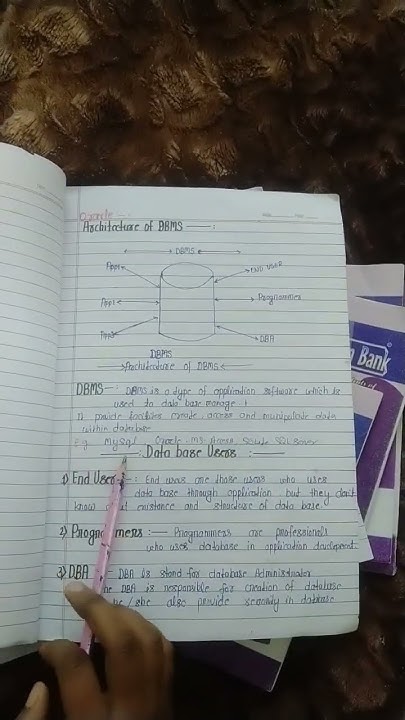 Example :-
Architecture of DBMS —:
DBMS
App1
END USER
App2
Programmer
App3
DBA
DBMS
Architecture of DBMS
DBMS —: DBMS is a type of application software which be
used to data base manage !
It provide facilites create access and manipulate data
within database
e.g. MySql Oracle MS Access, SQL Server
Data base Users :
1) End User - : End user are those users who uses
data base through application but they don't
know about existance and structure of data base.
2) Programmers :— Programmers are professionals
who uses database in application development
3) DBA - DBA is stand for database Administrator
The DBA is responsible for creation of database
he/she also provide security in database
Bank